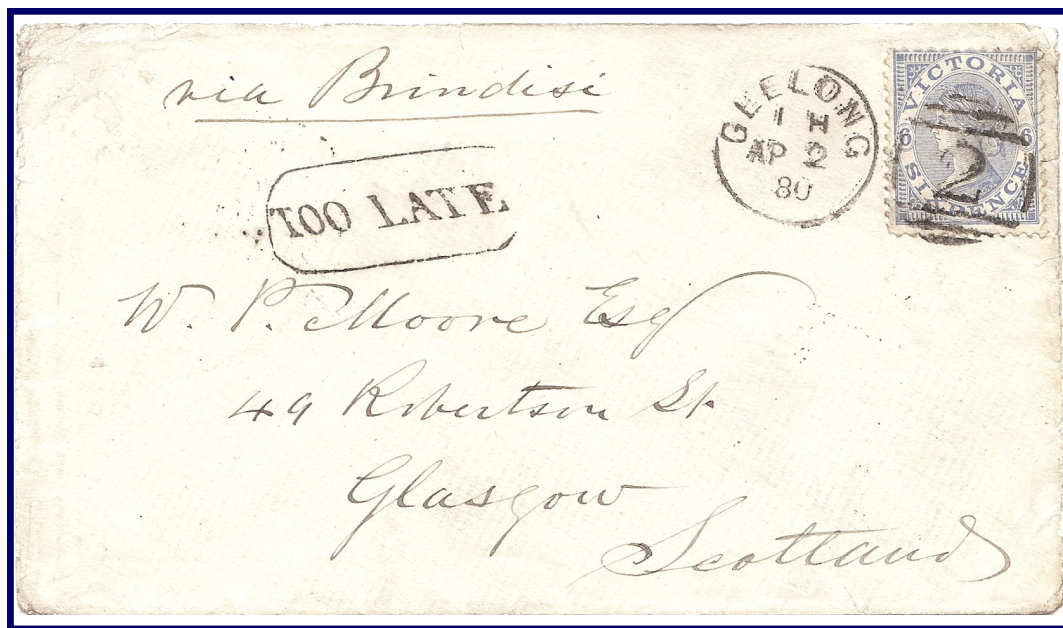 via Brindisi
GEELONG
1 H
AP 2
80
VICTORIA
6 6
SIXPENCE
2
TOO LATE
W. P. Moore Esq
49 Robertson St.
Glasgow
Scotland